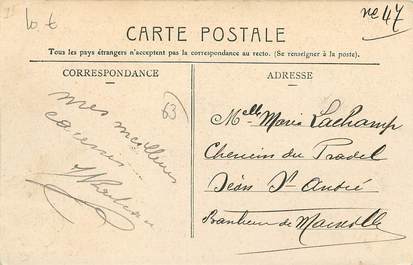 10 €
re 47
CARTE POSTALE
Tous les pays étrangers n'acceptent pas la correspondance au recto. (Se renseigner à la poste).
CORRESPONDANCE
ADRESSE
mes meilleurs
63
Melle Maria Lachamp
Chemin du Pradel
St André
Banlieue de Marseille